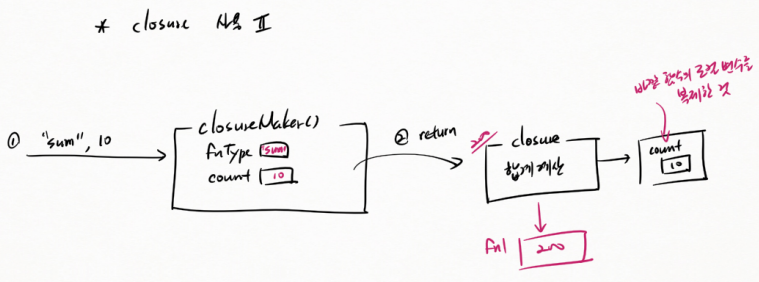 * closure 사용 Ⅱ
바깥 함수의 로컬 변수를
복제한 것
① "sum", 10
closureMaker()
fnType "sum"
count 10
② return
200
closure
합계 계산
count
10
fn1 200